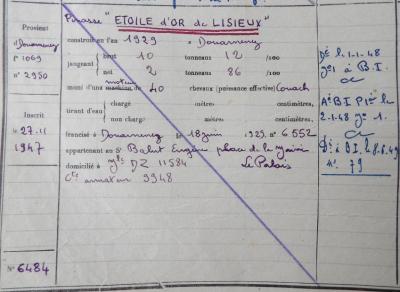 Pinasse "ETOILE D'OR de LISIEUX"
Provient
"Douarnenez
f° 1069
n° 2950
Inscrit
le 27.11
1947
N° 6484
construit en l'an 1929 à Douarnenez
jaugeant
brut 10 tonneaux 12 /100
net 2 tonneaux 86 /100
muni d'une machine de 40 chevaux (puissance effective) Couach
moteur
tirant d'eau
chargé mètres centimètres,
non chargé mètres centimètres,
francisé à Douarnenez le 18 juin 1929 n° 6552
appartenant au Sr Balut Eugène place de la Mairie
domicilié à DZ 11584 Le Palais
armateur 9948
1.1.48
à B.I.
2-1-48 1.
à B.I. le 8.6.49
n° 79